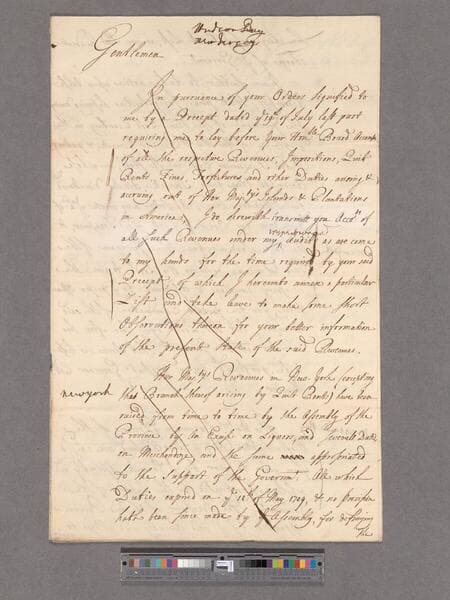 Hudson Bay
New Jersey
Gentlemen
In pursuance of your Orders signified to
me by a Precept dated yᵉ 19ᵗʰ of July last past
requiring me to lay before Your Honᵇˡᵉ Board Accoᵗˢ
of all the respective Revenues, Impositions, Quit
Rents, Fines, Forfeitures, and other Duties arising &
accruing out of Her Majᵗʸˢ Islands & Plantations
in America; I do herewith transmit you Accoᵗˢ of
all such Revenues under my Audit as are come
to my hands for the time required by your said
Precept, of which I hereunto annex a particular
List and take leave to make some short
Observations thereon for your better information
of the present State of the said Revenues.
New york
Her Majᵗʸˢ Revenues in New-York (excepting
that Branch thereof arising by Quit Rents) have been
raised from time to time by the Assembly of the
Province by an Excise on Liquors, and severall Duties
on Merchandize, and the same appropriated
to the support of the Governmᵗ. All which
Duties expired on yᵉ of May 1709, & no provision
hath been since made by yᵉ Assembly, for defraying
the